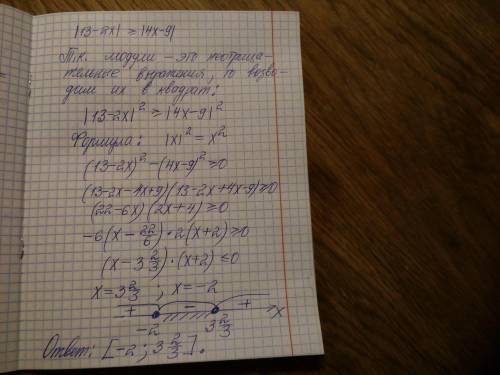 |13-2x| ≥ |4x-9|
Т.к. модули - это неотрица-
тельные выражения, то возво-
дим их в квадрат:
|13-2x|² ≥ |4x-9|²
Формула: |x|² = x²
(13-2x)² - (4x-9)² ≥ 0
(13-2x-4x+9)(13-2x+4x-9) ≥ 0
(22-6x)(2x+4) ≥ 0
-6(x - 22/6) · 2(x+2) ≥ 0
(x - 3 2/3) · (x+2) ≤ 0
x = 3 2/3 ; x = -2
+ - + x
-2 3 2/3
Ответ: [-2 ; 3 2/3].